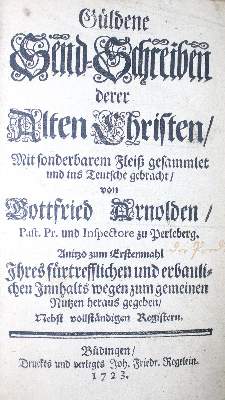 Güldene
Send-Schreiben
derer
Alten Christen/
Mit sonderbarem Fleiß gesammlet
und ins Teutsche gebracht/
von
Gottfried Arnolden/
Past. Pr. und Inspectore zu Perleberg.
Anitzo zum Erstenmahl
Ihres fürtrefflichen und erbauli-
chen Innhalts wegen zum gemeinen
Nutzen heraus gegeben/
Nebst vollständigen Registern.
Büdingen/
Druckts und verlegts Joh. Friedr. Regelein.
1723.